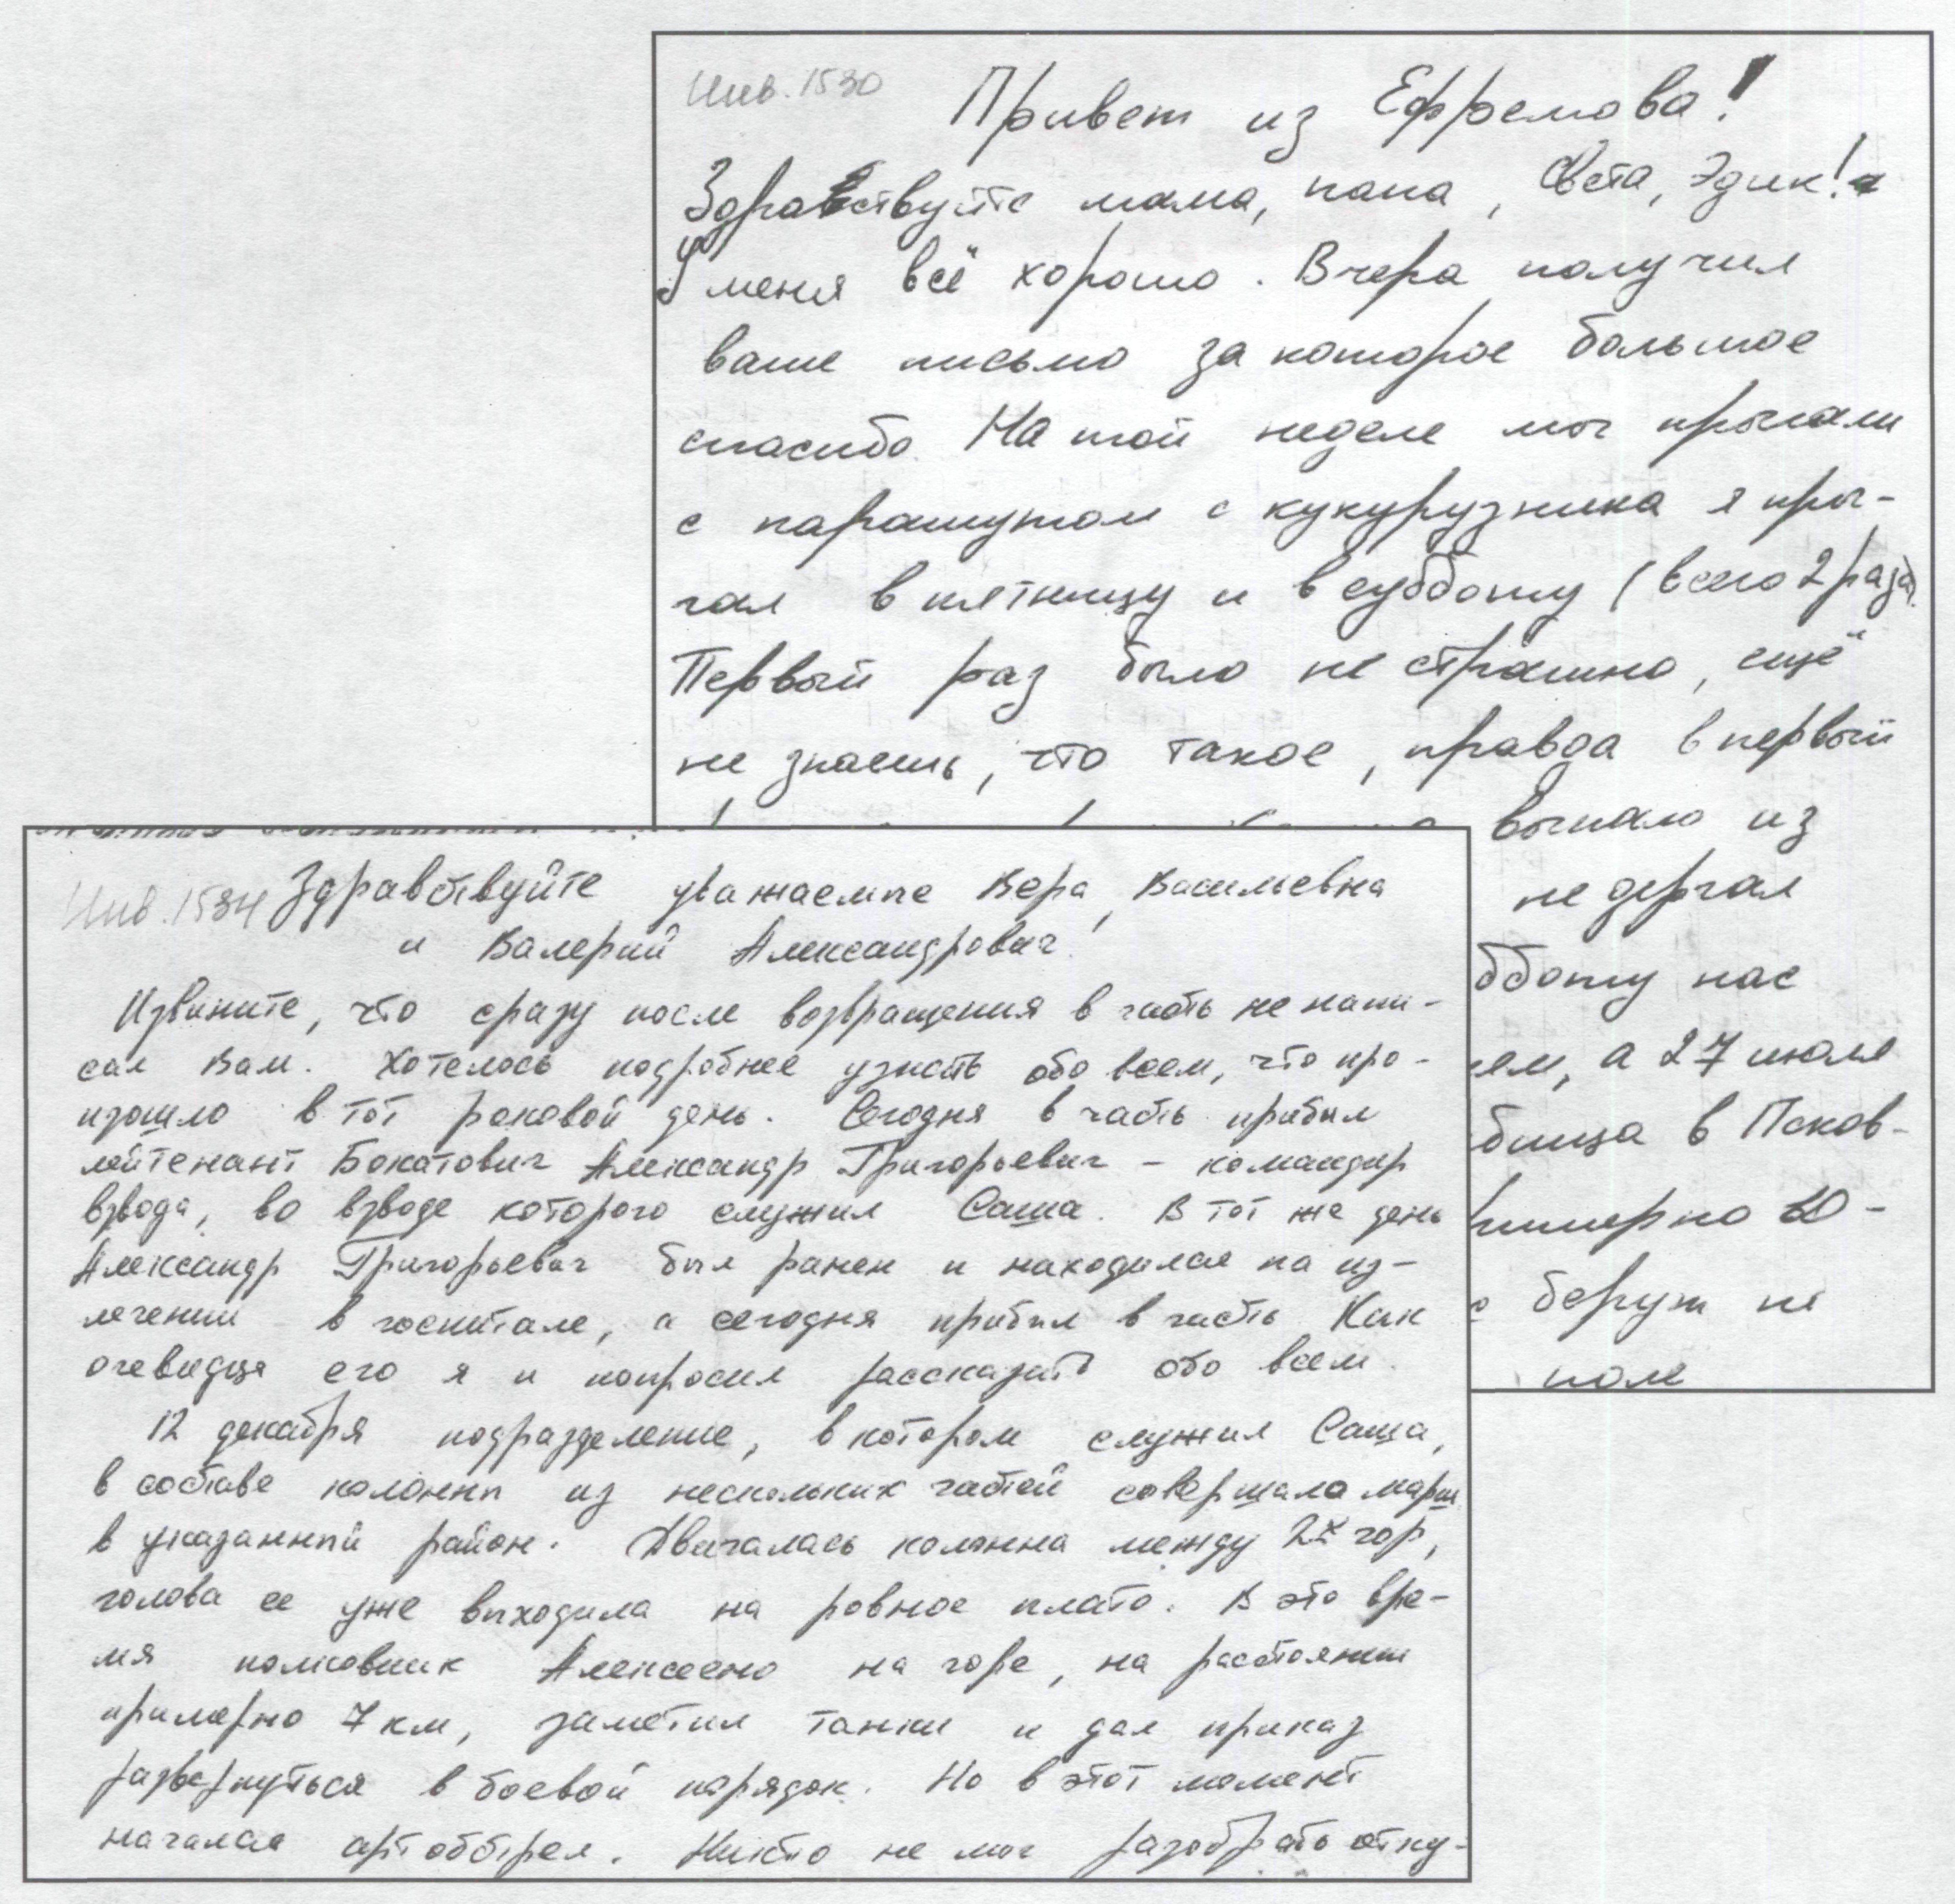 Инв. 1530
Привет из Ефремова!
Здравствуйте мама, папа, Света, Эдик!
У меня всё хорошо. Вчера получил
ваше письмо за которое большое
спасибо. На той неделе мы прыгали
с парашутом с кукурузника я пры-
гал в пятницу и в субботу (всего 2 раза)
Первый раз было не страшно, ещё
не знаешь, что такое, правда в первый
выпало из
не дергал
бботу нас
ем, а 27 июля
бища в Псков-
примерно 10-
берут не
поле
Инв. 1534
Здравствуйте уважаемые Вера Васильевна
и Валерий Александрович!
Извините, что сразу после возвращения в часть не напи-
сал Вам. Хотелось подробнее узнать обо всем, что про-
изошло в тот роковой день. Сегодня в часть прибыл
лейтенант Бокатович Александр Григорьевич - командир
взвода, во взводе которого служил Саша. В тот же день
Александр Григорьевич был ранен и находился на из-
лечении в госпитале, а сегодня прибыл в часть. Как
очевидца его я и попросил рассказать обо всем.
12 декабря подразделение, в котором служил Саша,
в составе колонны из нескольких частей совершало марш
в указанный район. Двигалась колонна между 2х гор,
голова ее уже выходила на ровное плато. В это вре-
мя полковник на горе, на расстоянии
примерно 7 км, заметил танки и дал приказ
развернуться в боевой порядок. Но в этот момент
начался артобстрел. Никто не мог разобрать отку-